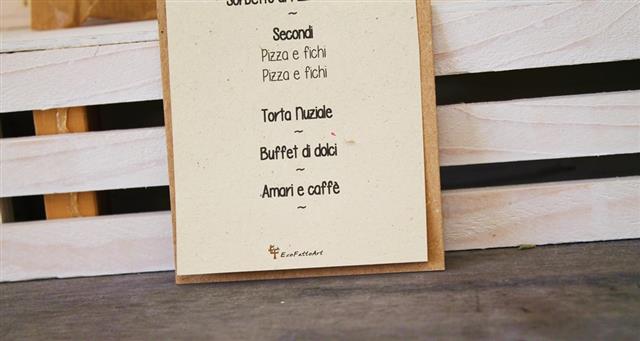 Sorbetto
~
Secondi
Pizza e fichi
Pizza e fichi
Torta Nuziale
~
Buffet di dolci
~
Amari e caffè
~
EcoFattoArt